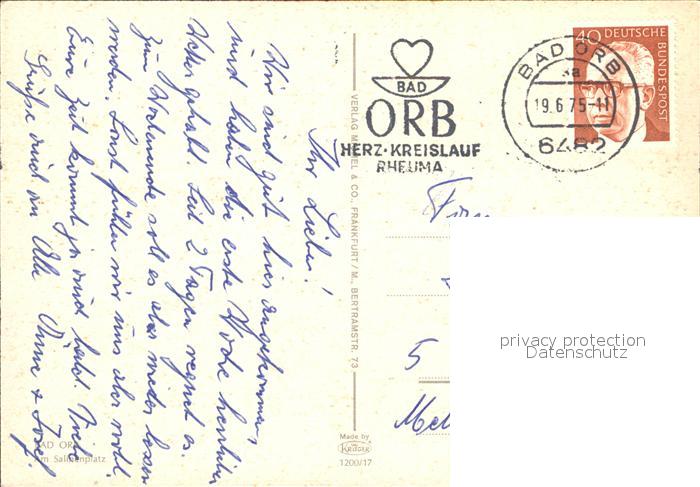 Ihr Lieben!
Wir sind gut hier angekommen,
und haben die erste Woche herrliches
Wetter gehabt. Seit 2 Tagen regnet es.
Zum Wochenende soll es aber wieder besser
werden. Sonst fühlen wir uns aber wohl.
Eure Zeit kommt ja auch bald. Viele
Grüße auch an Alle Anne + Josef.
BAD ORB
Am Salinenplatz
VERLAG & CO., FRANKFURT/M., BERTRAMSTR. 73
Made by
KRÜGER
1200/17
BAD
ORB
HERZ·KREISLAUF
RHEUMA
BAD ORB
19.6.75-11
6482
40 DEUTSCHE
BUNDESPOST
5
privacy protection
Datenschutz